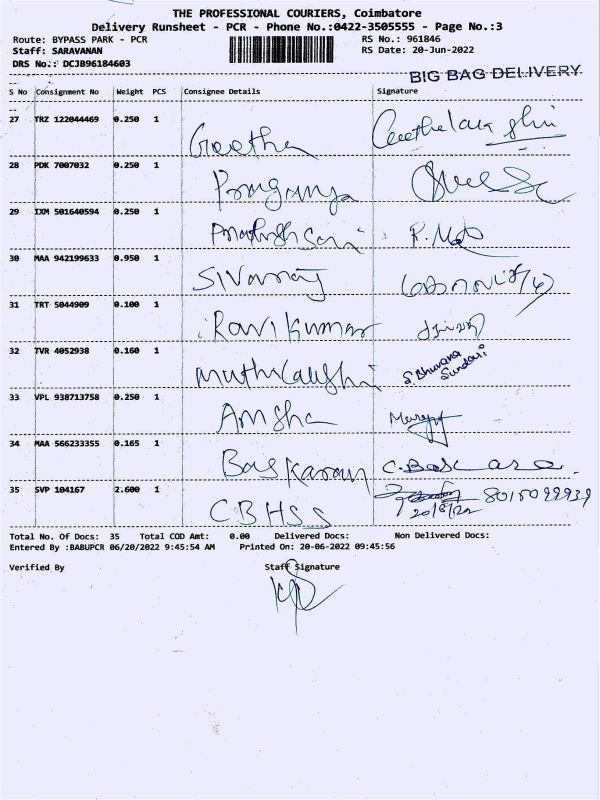 THE PROFESSIONAL COURIERS, Coimbatore
Delivery Runsheet - PCR - Phone No.:0422-3505555 - Page No.:3
Route: BYPASS PARK - PCR RS No.: 961846
Staff: SARAVANAN RS Date: 20-Jun-2022
DRS No.: DCJB96184603
BIG BAG DELIVERY
S No Consignment No Weight PCS Consignee Details Signature
27 TRZ 122044469 0.250 1 Geetha
28 PDK 7007032 0.250 1
29 IXM 501640594 0.250 1
30 MAA 942199633 0.950 1 Sivaraj
31 TRT 5044909 0.100 1 Ravi Kumar
32 TVR 4052938 0.160 1 S. Bhuvana Sundari
33 VPL 938713758 0.250 1 Amsha
34 MAA 566233355 0.165 1 Baskaran C. Baskaran
35 SVP 104167 2.600 1 CBHSS
20/6/22
Total No. Of Docs: 35 Total COD Amt: 0.00 Delivered Docs: Non Delivered Docs:
Entered By :BABUPCR 06/20/2022 9:45:54 AM Printed On: 20-06-2022 09:45:56
Verified By Staff Signature